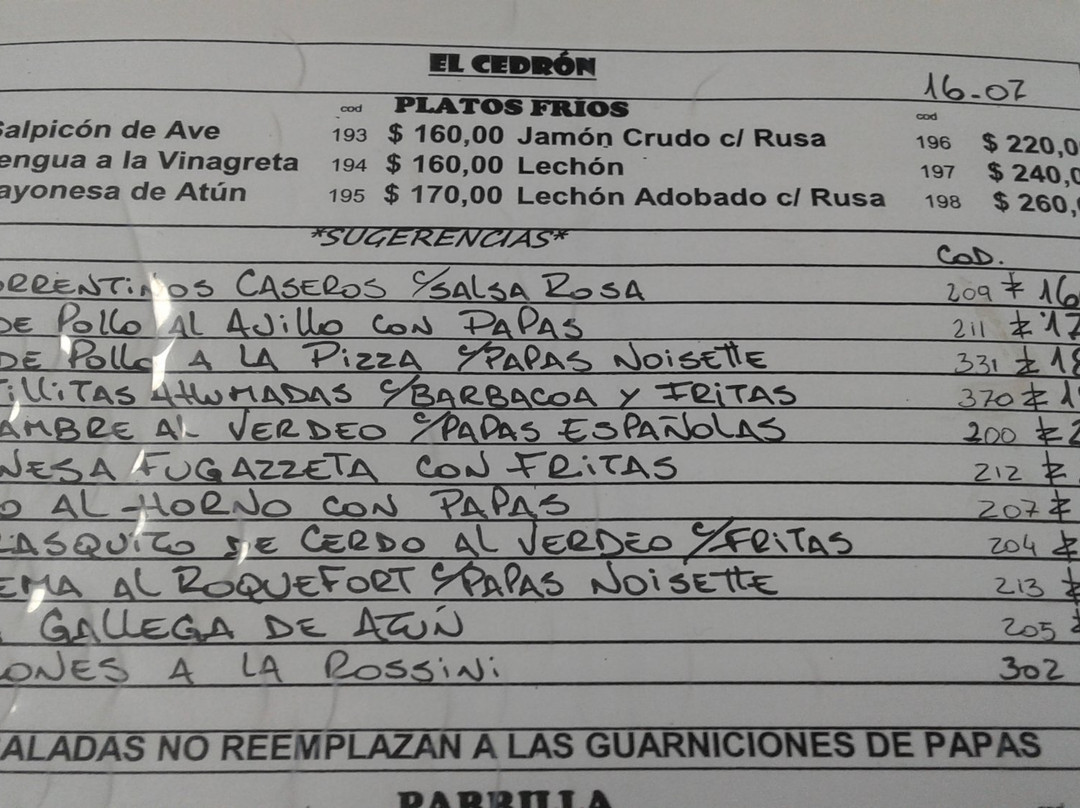 EL CEDRÓN
16-07
cod PLATOS FRIOS cod
Salpicón de Ave 193 $ 160,00 Jamón Crudo c/ Rusa 196 $ 220,0
engua a la Vinagreta 194 $ 160,00 Lechón 197 $ 240,0
ayonesa de Atún 195 $ 170,00 Lechón Adobado c/ Rusa 198 $ 260,
*SUGERENCIAS* COD.
RRENTINOS CASEROS C/SALSA ROSA 209 $ 16
DE POLLO AL AJILLO CON PAPAS 211 $ 17
DE POLLO A LA PIZZA C/PAPAS NOISETTE 331 $ 18
TILLITAS AHUMADAS C/BARBACOA Y FRITAS 370 $ 1
AMBRE AL VERDEO C/PAPAS ESPAÑOLAS 200 $ 2
NESA FUGAZZETA CON FRITAS 212 $
O AL HORNO CON PAPAS 207 $
ASQUITO DE CERDO AL VERDEO C/FRITAS 204 $
EMA AL ROQUEFORT C/PAPAS NOISETTE 213 $
GALLEGA DE ATÚN 205 $
ONES A LA ROSSINI 302
ALADAS NO REEMPLAZAN A LAS GUARNICIONES DE PAPAS
PARRILLA